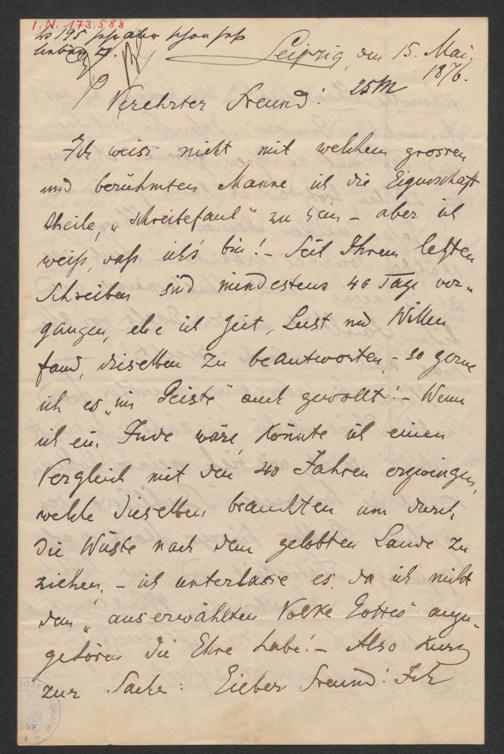 I.N. 173.588
Leipzig, den 15. Mai
1876.
25M
Verehrter Freund!
Ich weiss nicht mit welchem grossen
und berühmten Manne ich die Eigenschaft
theile, „schreibefaul“ zu sein – aber ich
weiß, daß ich's bin! – Seit Ihrem letzten
Schreiben sind mindestens 40 Tage ver-
gangen, ehe ich Zeit, Lust und Willen
fand, dieselben zu beantworten, – so gerne
ich es „im Geiste“ auch gewollt! – Wenn
ich ein Jude wäre, könnte ich einen
Vergleich mit den 40 Jahren erzwingen,
welche dieselben brauchten um durch
die Wüste nach dem gelobten Lande zu
ziehen, – ich unterlasse es, da ich nicht
dem „auserwählten Volke Gottes“ anzu-
gehören die Ehre habe! – Also kurz
zur Sache: Lieber Freund! Ich